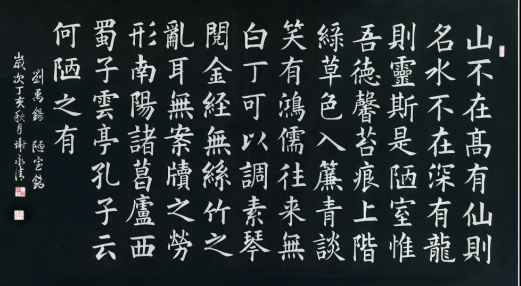 山不在髙有仙則
名水不在深有龍
則靈斯是陋室惟
吾徳馨苔痕上階
綠草色入簾青談
笑有鴻儒往来無
白丁可以調素琴
閱金經無絲竹之
亂耳無案牘之勞
形南陽諸葛廬西
蜀子雲亭孔子云
何陋之有
劉禹錫 陋室銘
歲次丁亥秋月